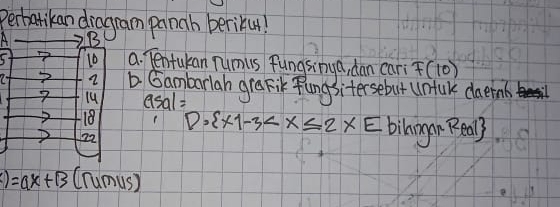 Perhatikan diagram panah berikut!
A → B
5 → 10
2 → 2
→ 14
→ 18
→ 22
a. Tentukan rumus fungsinya, dan cari F(10)
b. Gambarlah grafik fungsi tersebut untuk daerah
asal =
D = {x1-3 < x ≤ 2 x E bilangan Real}
)=ax+B (rumus)